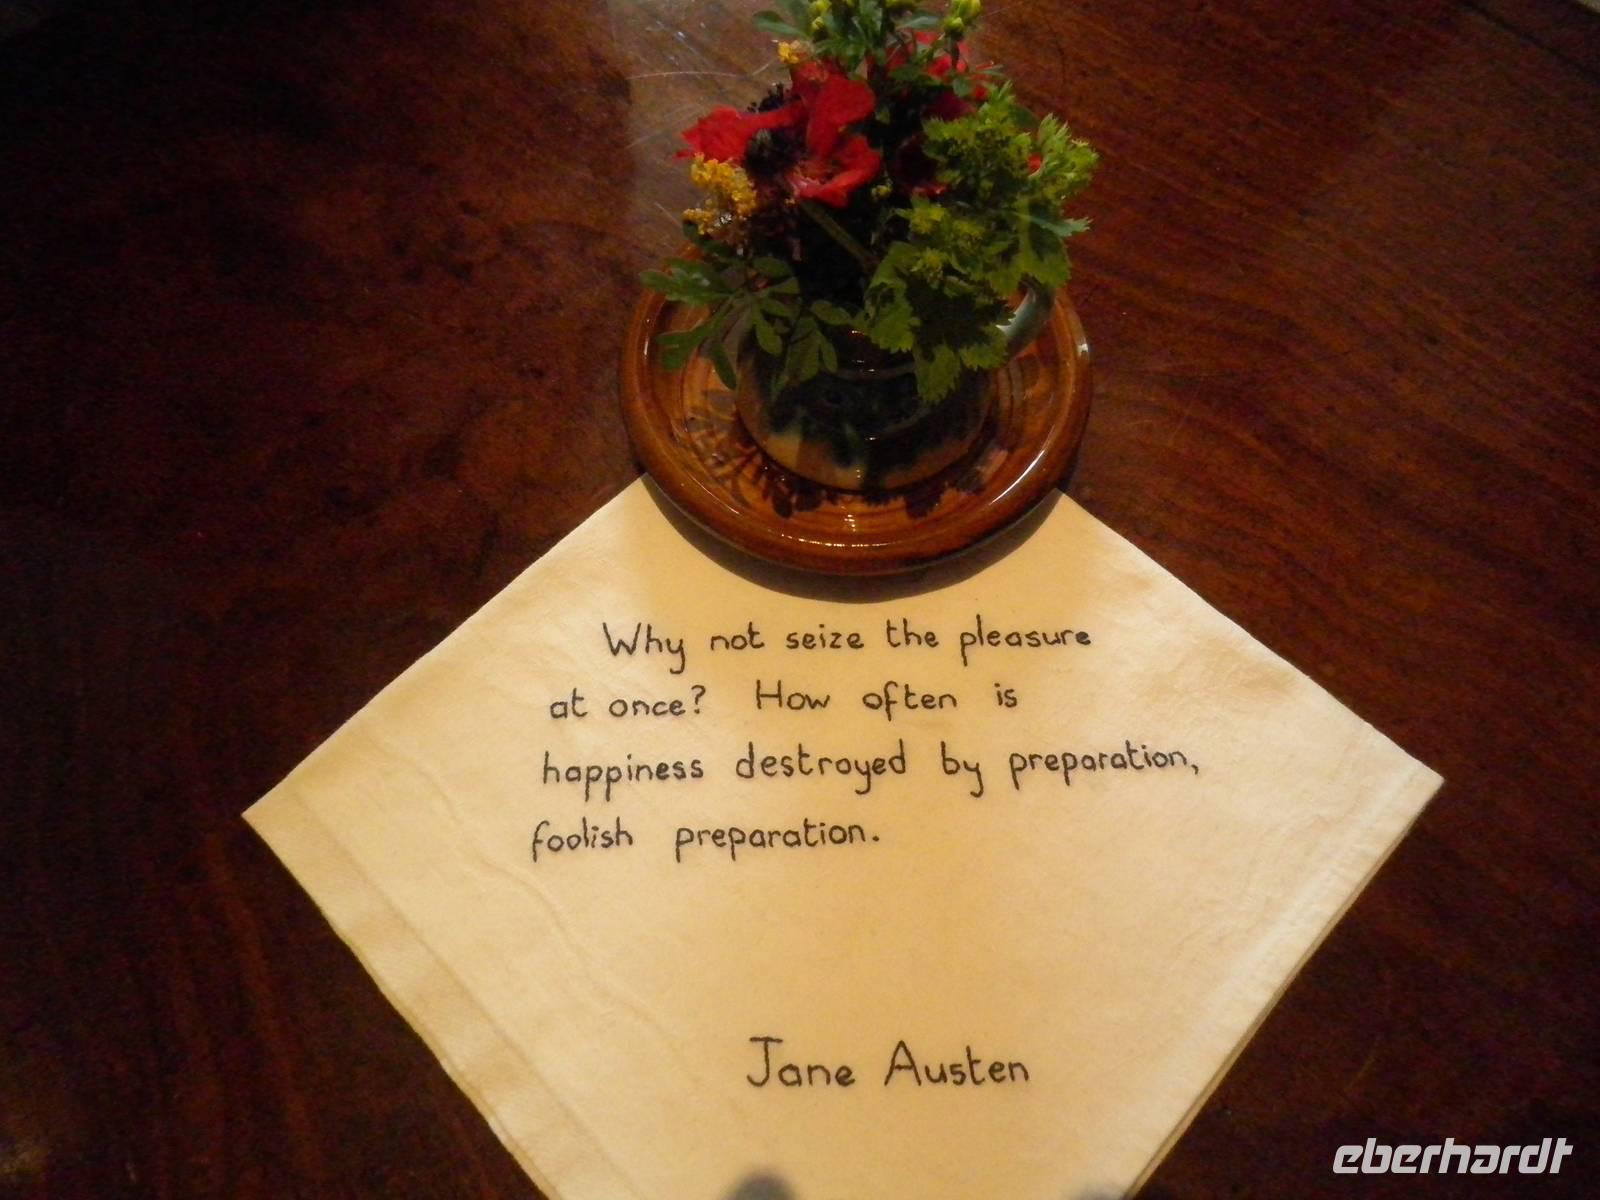 Why not seize the pleasure
at once? How often is
happiness destroyed by preparation,
foolish preparation.
Jane Austen
eberhardt